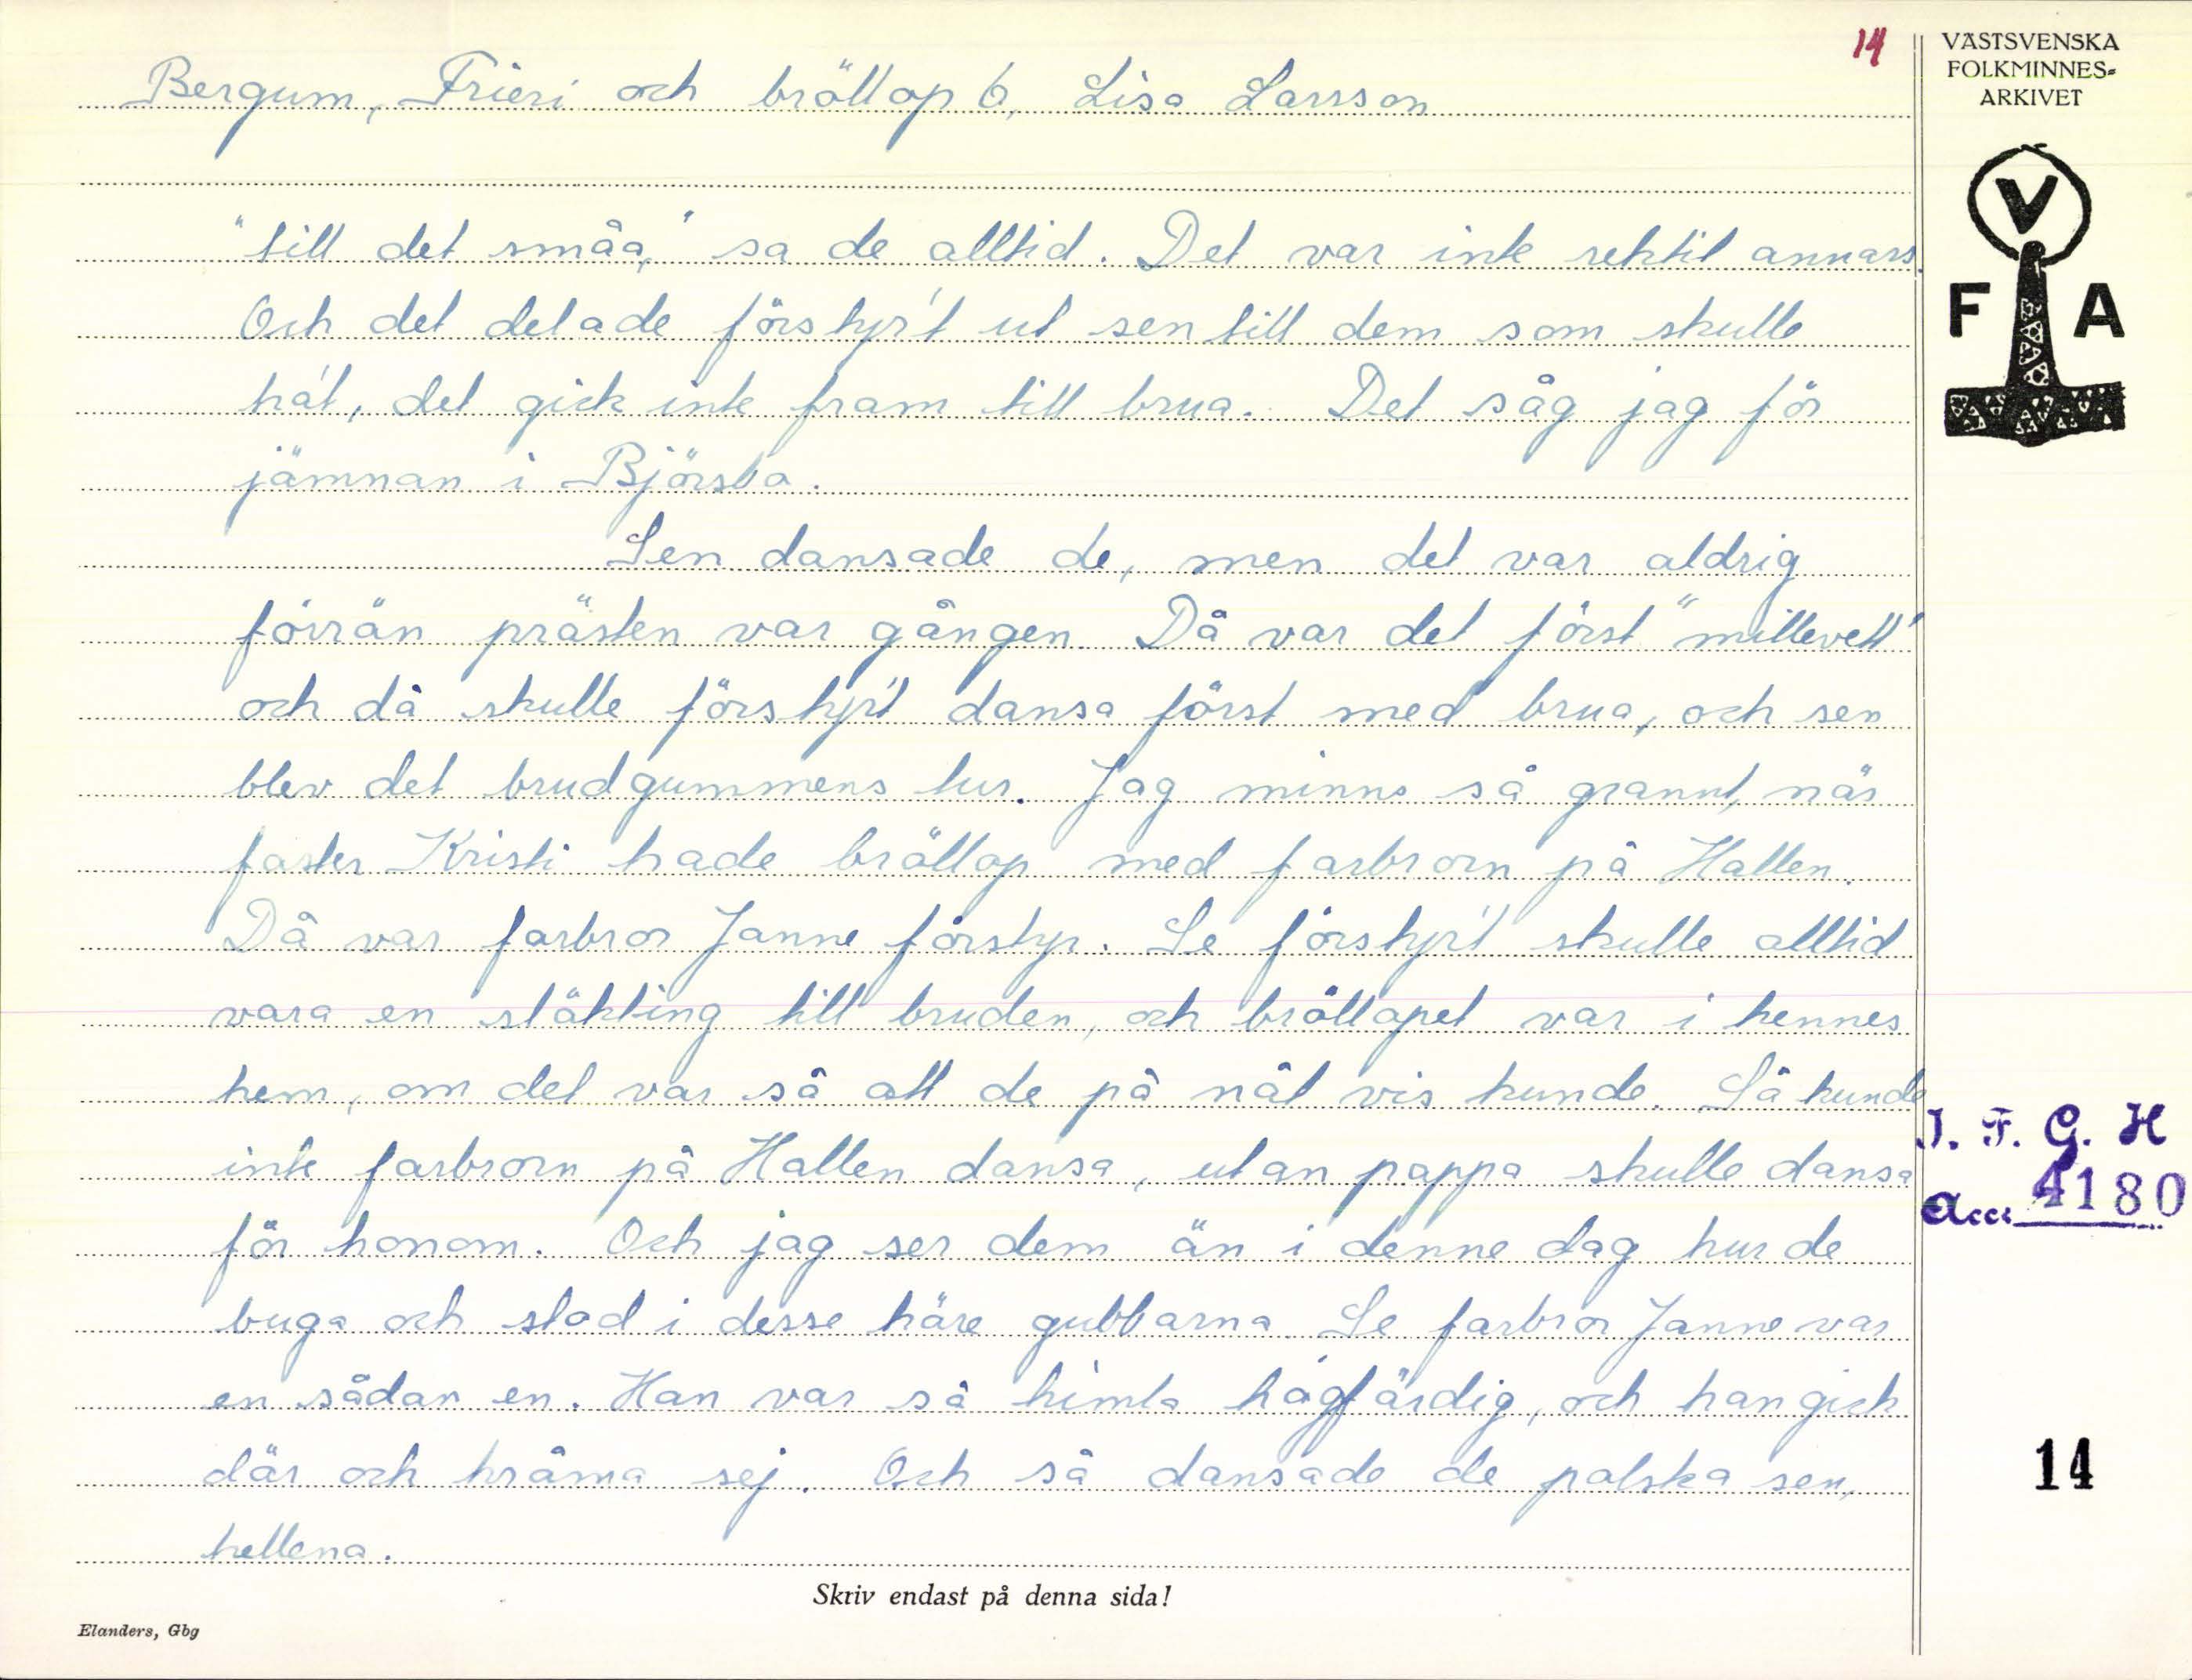 14
VÄSTSVENSKA
FOLKMINNES-
ARKIVET
Bergum, Frieri och bröllop 6, Lisa Larsson
V
F A
"till det småa," sa de alltid. Det var inte rektit annars.
Och det delade förstyr't ut sen till dem som skulle
ha't, det gick inte fram till brua. Det såg jag för
jämnan i Björsba.
Sen dansade de, men det var aldrig
förrän prästen var gången. Då var det först "millevett"
och då skulle förstyr't dansa först med brua, och sen
blev det brudgummens tur. Jag minns så grannt, när
faster Kristi hade bröllop med farbrorn på Hallen.
Då var farbror Janne förstyr. Se förstyr't skulle alltid
vara en släkting till bruden, och bröllopet var i hennes
hem, om det var så att de på nåt vis kunde. Så kunde
inte farbrorn på Hallen dansa, utan pappa skulle dansa
för honom. Och jag ser dem än i denne dag hur de
buga och stod i desse häre gubbarna. Se farbror Janne var
en sådan en. Han var så himla högfärdig, och han gick
där och kråma sej. Och så dansade de polska sen,
hellena.
J. F. G. H
Acc. 4180
14
Skriv endast på denna sida!
Elanders, Gbg